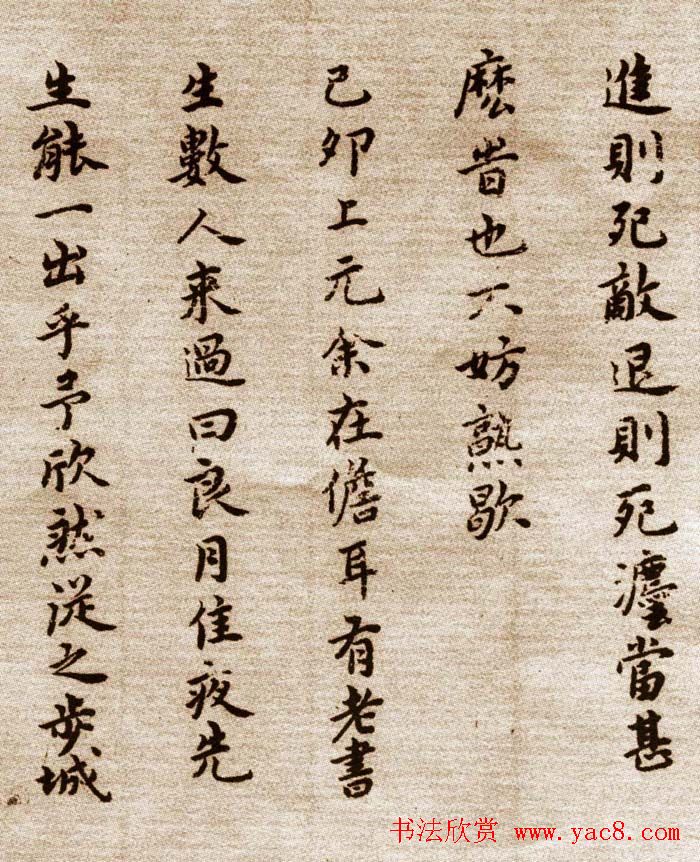 進則死敵退則死灋當甚
麽昔也不妨熟歇
己卯上元余在儋耳有老書
生數人來過曰良月佳夜先
生能一出乎予欣然從之步城
书法欣赏 www.yac8.com